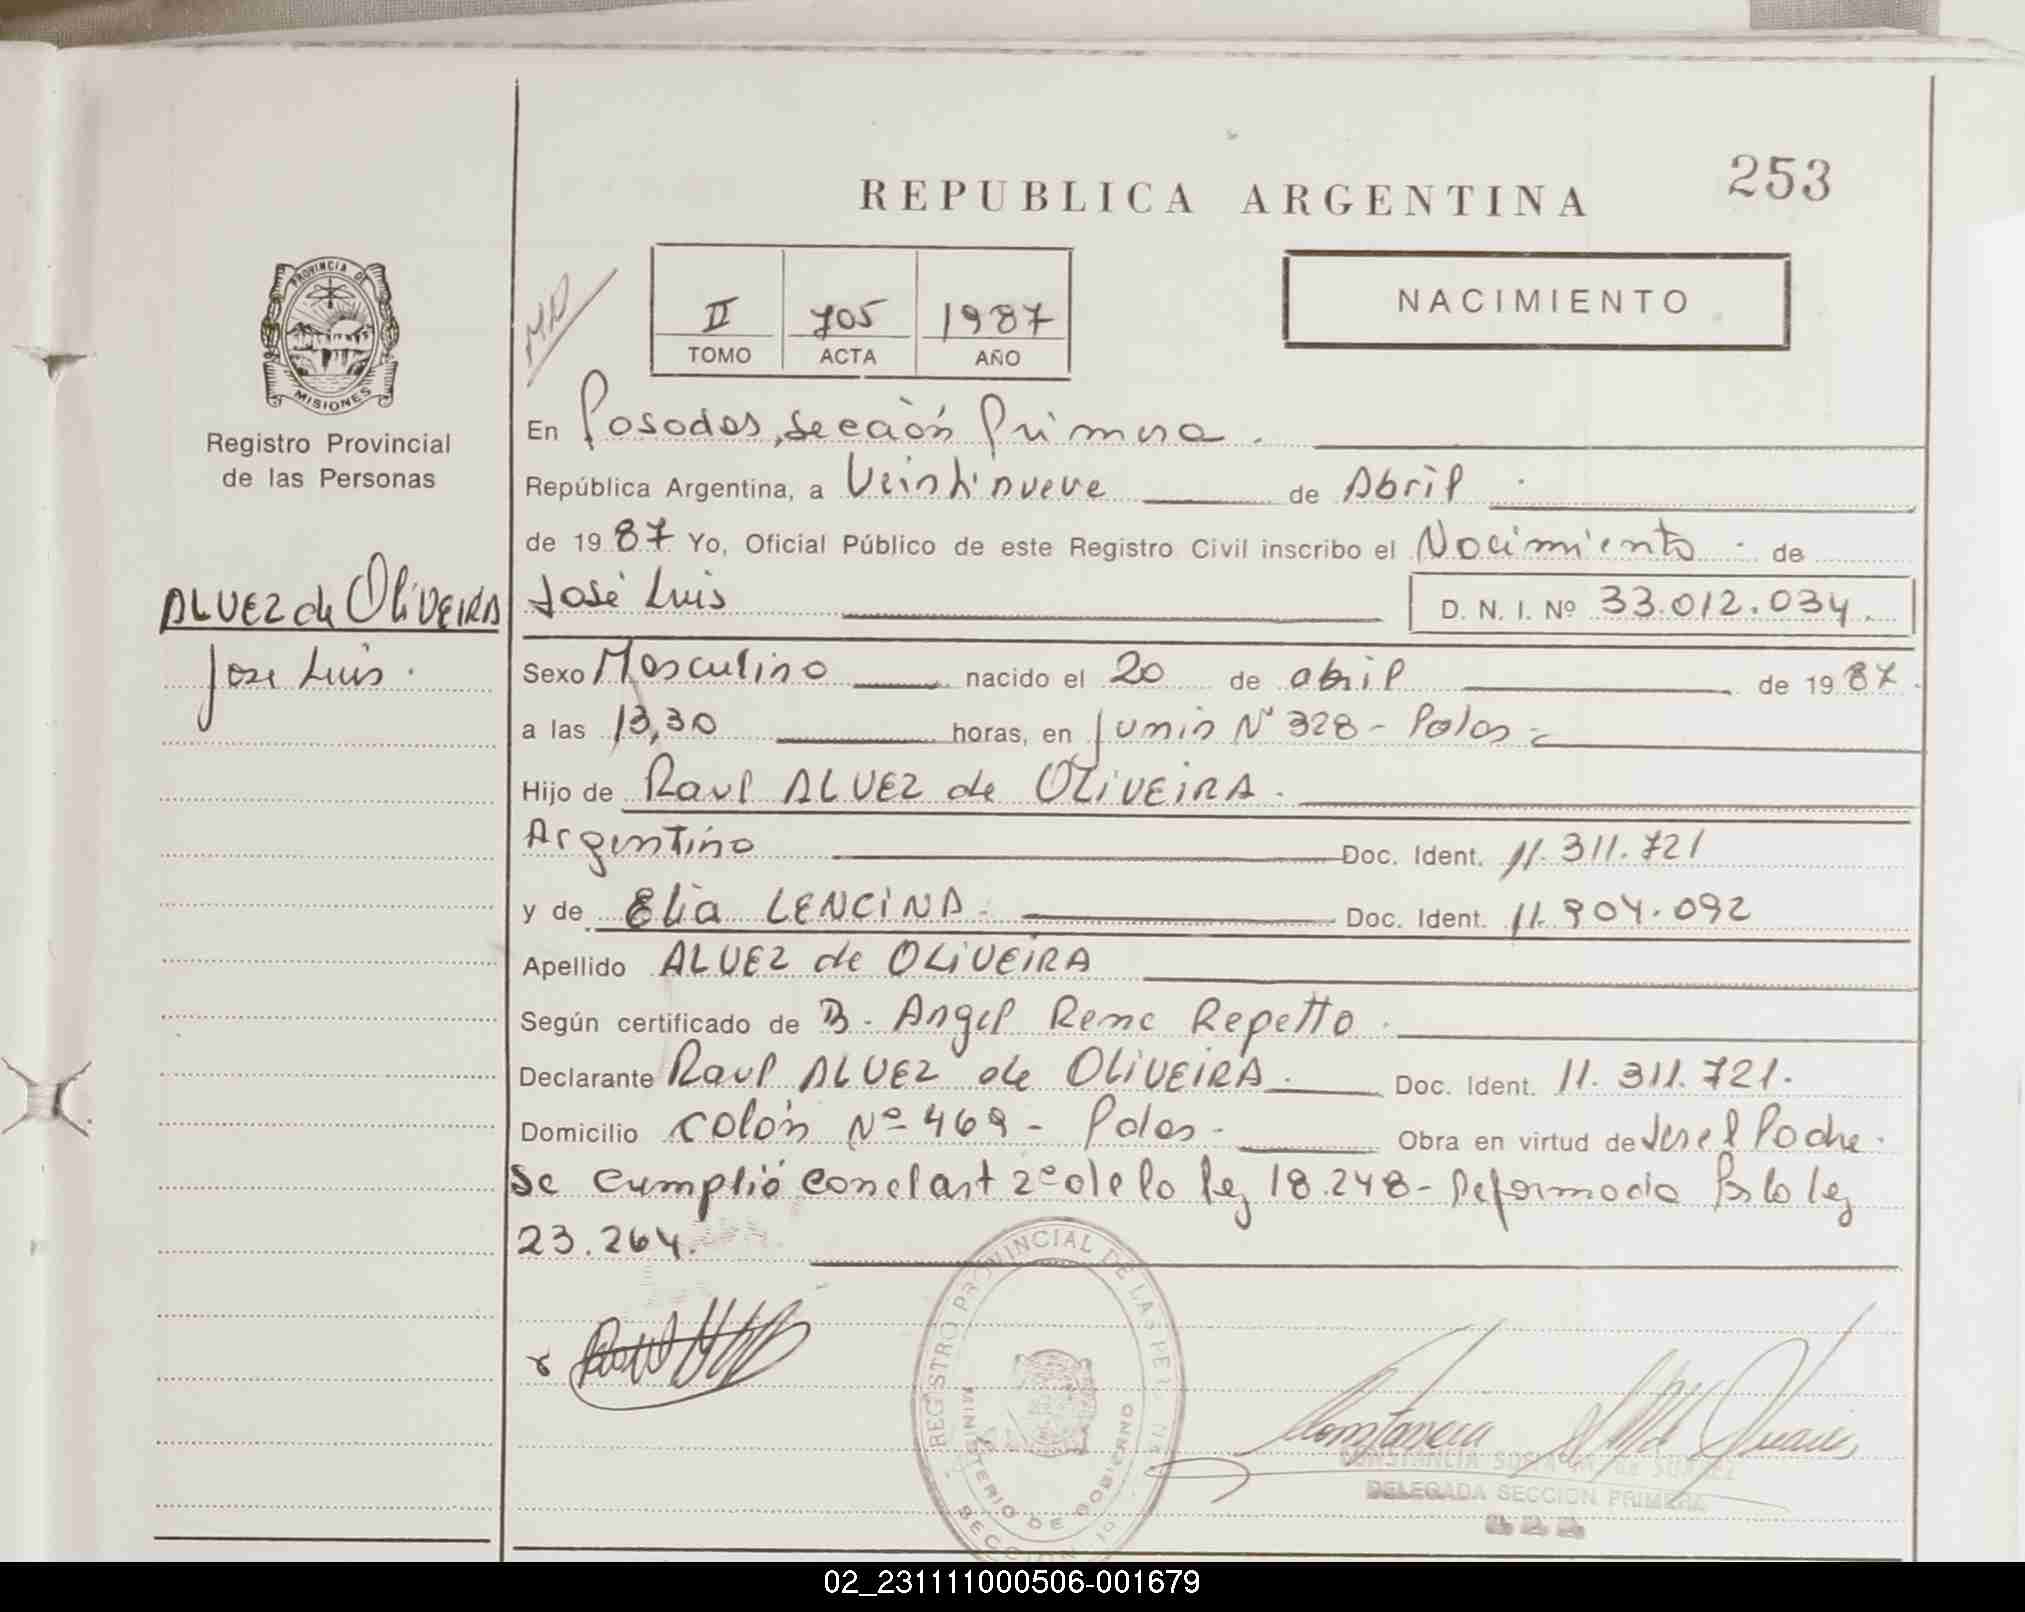 253
REPUBLICA ARGENTINA
NACIMIENTO
II 705 1987
TOMO ACTA AÑO
PROVINCIA DE
MISIONES
Registro Provincial
de las Personas
ALVEZ de OLIVEIRA
Jose Luis.
En Posadas, Sección Primera.
República Argentina, a Veintinueve de Abril
de 1987 Yo, Oficial Público de este Registro Civil inscribo el Nacimiento de
José Luis D. N. I. Nº 33.012.034.
Sexo Masculino nacido el 20 de abril de 1987.
a las 13,30 horas, en Junin Nº 328 - Pdas
Hijo de Raul ALVEZ de OLIVEIRA.
Argentino Doc. Ident. 11.311.721
y de Elia LENCINA. Doc. Ident. 11.904.092
Apellido ALVEZ de OLIVEIRA
Según certificado de Angel Rene Repetto.
Declarante Raul ALVEZ de OLIVEIRA. Doc. Ident. 11.311.721.
Domicilio Colón Nº 469 - Pdas. Obra en virtud de ser el Padre.
Se cumplió con el art 2º de la ley 18.248 - Reformada Por la ley
23.264.
REGISTRO PROVINCIAL DE LAS PER
MINISTERIO DE GOBIERNO
SECCION 1º
CONSTANCIA SOFIA M. de SUAREZ
DELEGADA SECCION PRIMERA
02_231111000506-001679